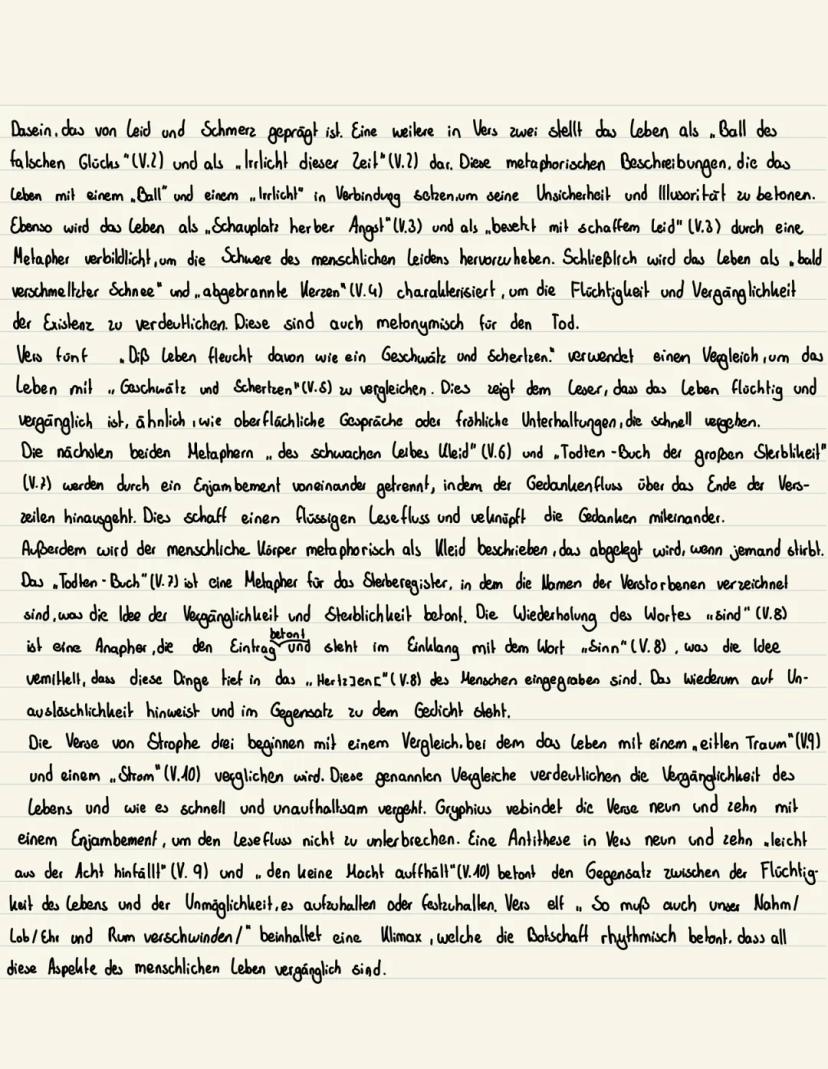 Dasein, das von Leid und Schmerz geprägt ist. Eine weitere in Vers zwei stellt das Leben als „Ball des
falschen Glücks"(V.2) und als „Irrlicht dieser Zeit"(V.2) dar. Diese metaphorischen Beschreibungen, die das
Leben mit einem „Ball" und einem „Irrlicht" in Verbindung setzen, um seine Unsicherheit und Illusorität zu betonen.
Ebenso wird das Leben als „Schauplatz herber Angst"(V.3) und als „besetzt mit schaffem Leid" (V.3) durch eine
Metapher verbildlicht, um die Schwere des menschlichen Leidens hervorzuheben. Schließlich wird das Leben als „bald
verschmeltzter Schnee" und „abgebrannte Kerzen"(V.4) charakterisiert, um die Flüchtigkeit und Vergänglichkeit
der Existenz zu verdeutlichen. Diese sind auch metonymisch für den Tod.
Vers fünf „Diß Leben fleucht davon wie ein Geschwätz und Schertzen." verwendet einen Vergleich, um das
Leben mit „Geschwätz und Schertzen"(V.5) zu vergleichen. Dies zeigt dem Leser, dass das Leben flüchtig und
vergänglich ist, ähnlich, wie oberflächliche Gespräche oder fröhliche Unterhaltungen, die schnell vergehen.
Die nächsten beiden Metaphern „des schwachen Leibes Kleid" (V.6) und „Todten-Buch der großen Sterblikeit"
(V.7) werden durch ein Enjambement voneinander getrennt, indem der Gedankenfluss über das Ende der Vers-
zeilen hinausgeht. Dies schaff einen flüssigen Lesefluss und veknüpft die Gedanken miteinander.
Außerdem wird der menschliche Körper metaphorisch als Kleid beschrieben, das abgelegt wird, wenn jemand stirbt.
Das „Todten-Buch"(V.7) ist eine Metapher für das Sterberegister, in dem die Namen der Verstorbenen verzeichnet
sind, was die Idee der Vergänglichkeit und Sterblichkeit betont. Die Wiederholung des Wortes „sind" (V.8)
ist eine Anapher, die den Eintrag betont und steht im Einklang mit dem Wort „Sinn"(V.8), was die Idee
vermittelt, dass diese Dinge tief in das „Hertz]en["(V.8) des Menschen eingegraben sind. Das wiederum auf Un-
auslöschlichkeit hinweist und im Gegensatz zu dem Gedicht steht.
Die Verse von Strophe drei beginnen mit einem Vergleich, bei dem das Leben mit einem „eitlen Traum"(V.9)
und einem „Strom"(V.10) verglichen wird. Diese genannten Vergleiche verdeutlichen die Vergänglichkeit des
Lebens und wie es schnell und unaufhaltsam vergeht. Gryphius vebindet die Verse neun und zehn mit
einem Enjambement, um den Lesefluss nicht zu unterbrechen. Eine Antithese in Vers neun und zehn „leicht
aus der Acht hinfällt" (V. 9) und „den keine Macht auffhält"(V.10) betont den Gegensatz zwischen der Flüchtig-
keit des Lebens und der Unmöglichkeit, es aufzuhalten oder festzuhalten. Vers elf „So muß auch unser Nahm/
Lob/Ehr und Rum verschwinden/" beinhaltet eine Klimax, welche die Botschaft rhythmisch betont, dass all
diese Aspekte des menschlichen Leben vergänglich sind.